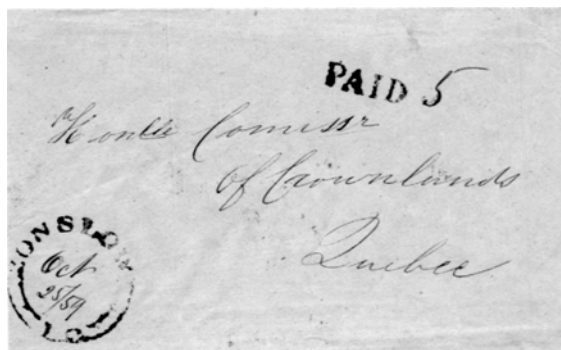 PAID 5
Honble Comissr
of Crownlands
Quebec
ONSLOW
Oct
25/59
L.C